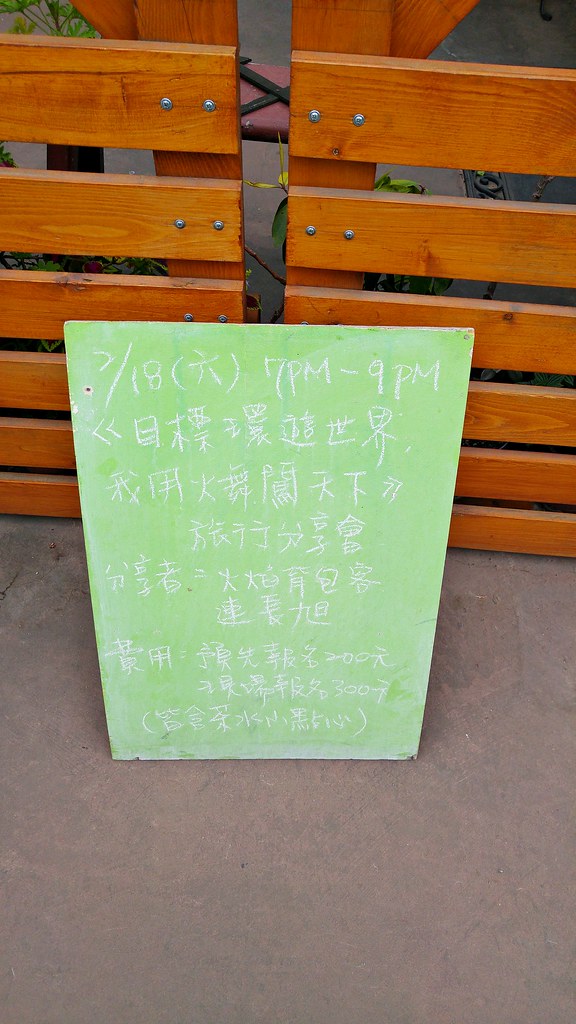 2/18(六) 7PM-9PM
《目標環遊世界,
我用火舞闖天下》
旅行分享會
分享者：火焰背包客
連長旭
費用：預先報名200元
現場報名300元
(皆含茶水小點心)